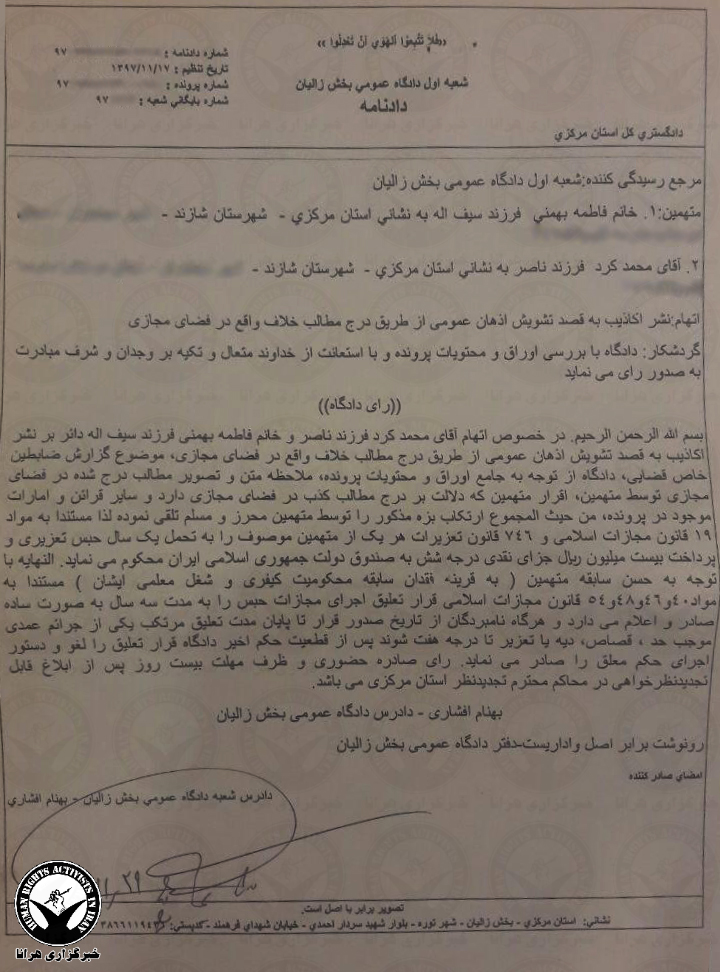 «فلا تتبعوا الهوي أن تعدلوا»
شماره دادنامه : ۹۷
تاریخ تنظیم : ۱۳۹۷/۱۱/۱۷
شماره پرونده : ۹۷
شماره بایگاني شعبه : ۹۷
شعبه اول دادگاه عمومي بخش زالیان
دادنامه
دادگستري کل استان مرکزي
مرجع رسیدگی کننده:شعبه اول دادگاه عمومی بخش زالیان
متهمین:۱. خانم فاطمه بهمني فرزند سیف اله به نشاني استان مرکزي - شهرستان شازند -
۲. آقای محمد کرد فرزند ناصر به نشاني استان مرکزي - شهرستان شازند -
اتهام:نشر اکاذیب به قصد تشویش اذهان عمومی از طریق درج مطالب خلاف واقع در فضای مجازی
گردشکار: دادگاه با بررسی اوراق و محتویات پرونده و با استعانت از خداوند متعال و تکیه بر وجدان و شرف مبادرت
به صدور رای می نماید
((رای دادگاه))
بسم الله الرحمن الرحیم. در خصوص اتهام آقای محمد کرد فرزند ناصر و خانم فاطمه بهمنی فرزند سیف اله دائر بر نشر
اکاذیب به قصد تشویش اذهان عمومی از طریق درج مطالب خلاف واقع در فضای مجازی، موضوع گزارش ضابطین
خاص قضایی، دادگاه از توجه به جامع اوراق و محتویات پرونده، ملاحظه متن و تصویر مطالب درج شده در فضای
مجازی توسط متهمین، اقرار متهمین که دلالت بر درج مطالب کذب در فضای مجازی دارد و سایر قرائن و امارات
موجود در پرونده، من حیث المجموع ارتکاب بزه مذکور را توسط متهمین محرز و مسلم تلقی نموده لذا مستندا به مواد
۱۹ قانون مجازات اسلامی و ۷۴۶ قانون تعزیرات هر یک از متهمین موصوف را به تحمل یک سال حبس تعزیری و
پرداخت بیست میلیون ریال جزای نقدی درجه شش به صندوق دولت جمهوری اسلامی ایران محکوم می نماید. النهایه با
توجه به حسن سابقه متهمین ( به قرینه فقدان سابقه محکومیت کیفری و شغل معلمی ایشان ) مستندا به
مواد۴۰و۴۶و۴۸و۵۴ قانون مجازات اسلامی قرار تعلیق اجرای مجازات حبس را به مدت سه سال به صورت ساده
صادر و اعلام می دارد و هرگاه نامبردگان از تاریخ صدور قرار تا پایان مدت تعلیق مرتکب یکی از جرائم عمدی
موجب حد ، قصاص، دیه یا تعزیر تا درجه هفت شوند پس از قطعیت حکم اخیر دادگاه قرار تعلیق را لغو و دستور
اجرای حکم معلق را صادر می نماید. رای صادره حضوری و ظرف مهلت بیست روز پس از ابلاغ قابل
تجدیدنظرخواهی در محاکم محترم تجدیدنظر استان مرکزی می باشد.
بهنام افشاری - دادرس دادگاه عمومی بخش زالیان
رونوشت برابر اصل واداریست-دفتر دادگاه عمومی بخش زالیان
امضاي صادر کننده
دادرس شعبه دادگاه عمومي بخش زالیان - بهنام افشاري
تصویر برابر با اصل است.
نشاني: استان مرکزي - بخش زالیان - شهر توره - بلوار شهید سردار احمدي - خیابان شهداي فرهمند - کدپستي:
HUMAN RIGHTS ACTIVISTS IN IRAN
خبرگزاری هرانا